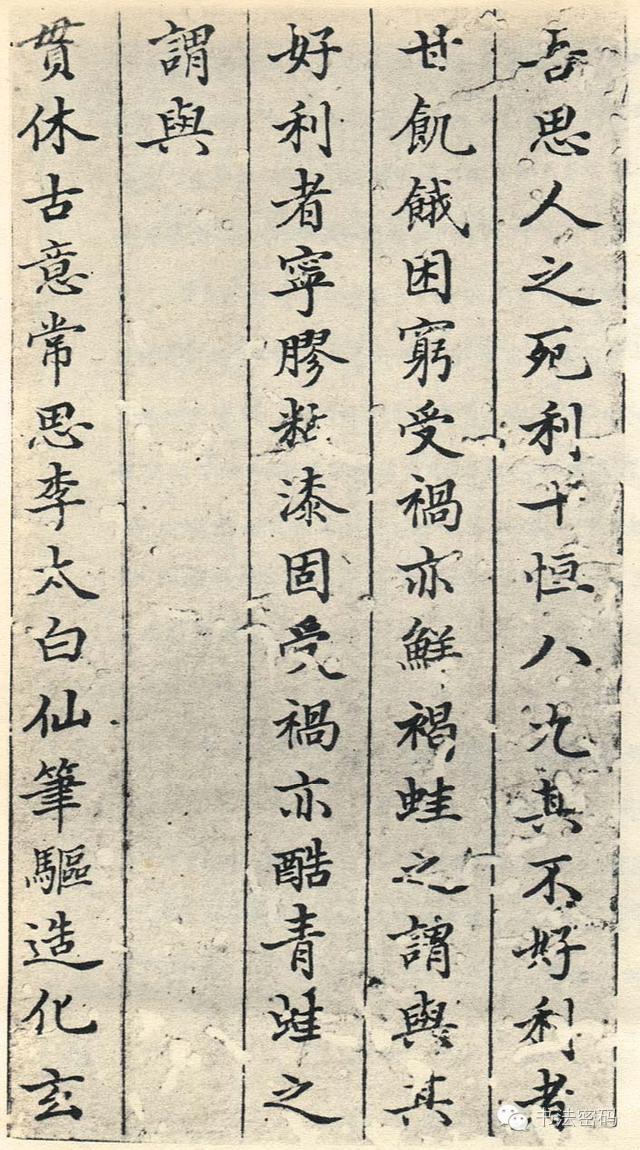 吾思人之死利十恒八九其不好利者
甘飢餓困窮受禍亦鮮褐蛙之謂與其
好利者寧膠粘漆固受禍亦酷青蛙之
謂與
貫休古意常思李太白仙筆驅造化玄
书法密码